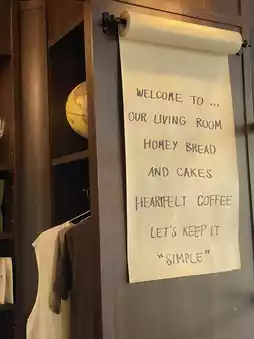 WELCOME TO ...
OUR LIVING ROOM
HOMEY BREAD
AND CAKES
HEARTFELT COFFEE
LET'S KEEP IT
"SIMPLE"